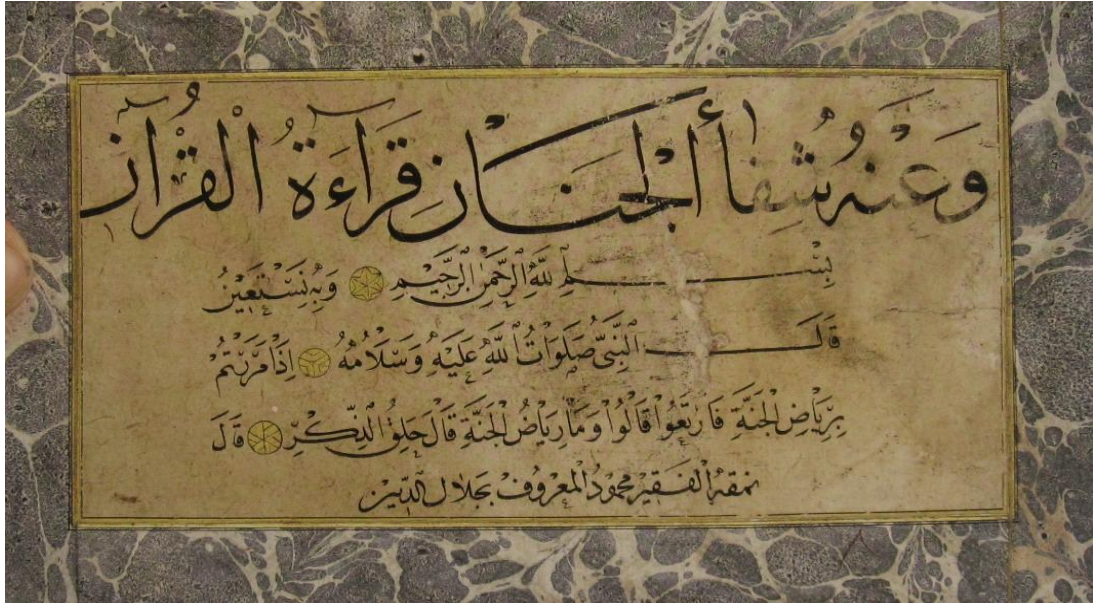 وَعَنْهُ شِفَاءُ الْجَنَانِ قِرَاءَةُ الْقُرْآنِ
بِسْمِ اللَّهِ الرَّحْمٰنِ الرَّحِيمِ وَبِهِ نَسْتَعِينُ
قَالَ النَّبِيُّ صَلَوَاتُ اللَّهِ عَلَيْهِ وَسَلَامُهُ اِذَا مَرَرْتُمْ
بِرِيَاضِ الْجَنَّةِ فَارْتَعُوا قَالُوا وَمَا رِيَاضُ الْجَنَّةِ قَالَ حَلِقُ الذِّكْرِ قَالَ
نمقه الفقير محمود المعروف بجلال الدين